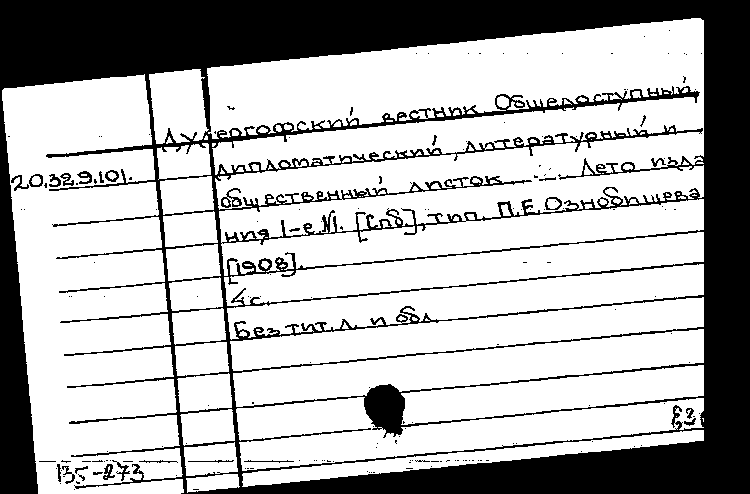 Дудергофский вестник Общедоступный,
20.32.9.101.
дипломатический, литературный и
общественный листок ..... Лето изда
ния I-е №1. [Спб.], тип. П.Е. Ознобишева
[1908].
4 с.
Без тит. л. и обл.
135-273